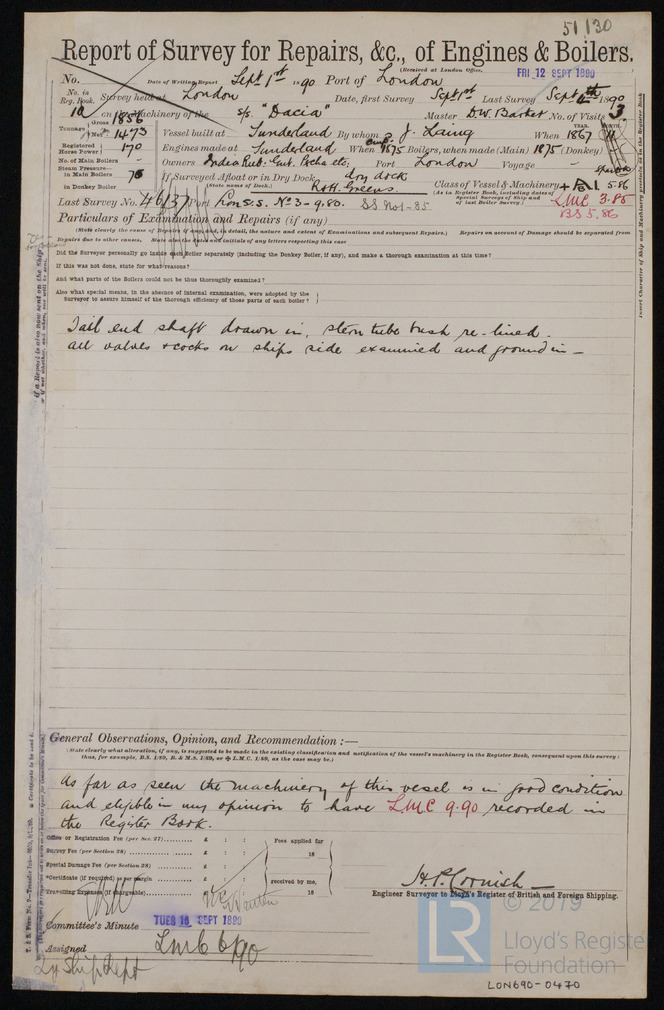 51130
Report of Survey for Repairs, &c., of Engines & Boilers.
(Received at London Office,
FRI 12 SEPT 1890
No. Date of Writing Report Septr 1st 1890 Port of London
No. in Reg. Book. Survey held at London Date, first Survey Sept 1st Last Survey Sept 1890
10 on the Machinery of the s/s. "Dacia" Master D.W. Barker No. of Visits 3
Tonnage Gross 1856
Net 1473 Vessel built at Sunderland By whom J. Laing When 1867
YEAR. MONTH.
Registered Horse Power 170 Engines made at Sunderland When 1875 Boilers, when made (Main) 1875 (Donkey) -
No. of Main Boilers - Owners India Rub. Gut. Percha etc, Port London Voyage -
Steam Pressure— in Main Boilers 75 If Surveyed Afloat or in Dry Dock dry dock
(State name of Dock.) R & H. Greens.
in Donkey Boiler
Class of Vessel & Machinery + A1. 5.86
(As in Register Book, including dates of Special Surveys of Ship and of last Boiler Survey.)
LMC 3.85
BS 5.86
Last Survey No. 46137 Port Lon S.S. No 3 - 9.80. SS No 1-85
Particulars of Examination and Repairs (if any)
(State clearly the nature of Repairs, if any, in detail, the nature and extent of Examinations and subsequent Repairs.) Repairs on account of Damage should be separated from
Repairs due to other causes. State also the date and initials of any letters respecting this case
Did the Surveyor personally go inside each Boiler separately (including the Donkey Boiler, if any), and make a thorough examination at this time?
If this was not done, state for what reasons?
And what parts of the Boilers could not be thoroughly examined?
Also what special means, in the absence of internal examination, were adopted by the
Surveyor to assure himself of the thorough efficiency of those parts of each boiler?
Tail end shaft drawn in, stern tube bush re-lined.
all valves & cocks on ships side examined and ground in —
General Observations, Opinion, and Recommendation :—
(State clearly what alteration, if any, is suggested to be made in the existing classification and notification of the vessel's machinery in the Register Book, consequent upon this survey:
thus, for example, B.S. 1/89, B. & M.S. 1/89, or L.M.C. 1/89, as the case may be.)
As far as seen the machinery of this vessel is in good condition
and eligible in my opinion to have LMC 9.90 recorded in
the Register Book.
Office or Registration Fee (per Sec. 27) £ : :
Survey Fee (per Section 28) £ : :
Special Damage Fee (per Section 28) £ : :
*Certificate (if required) as per margin £ : :
Travelling Expenses (if chargeable) £ : :
Fees applied for
18
received by me,
18
H. P. Cornish —
Engineer Surveyor to Lloyd's Register of British and Foreign Shipping.
Committee's Minute TUES 16 SEPT 1890
Assigned LMC 9.90
LR © 2019
Lloyd's Register
Foundation
LON690-0470
Insert Character of Ship and Machinery precisely as in the Register Book